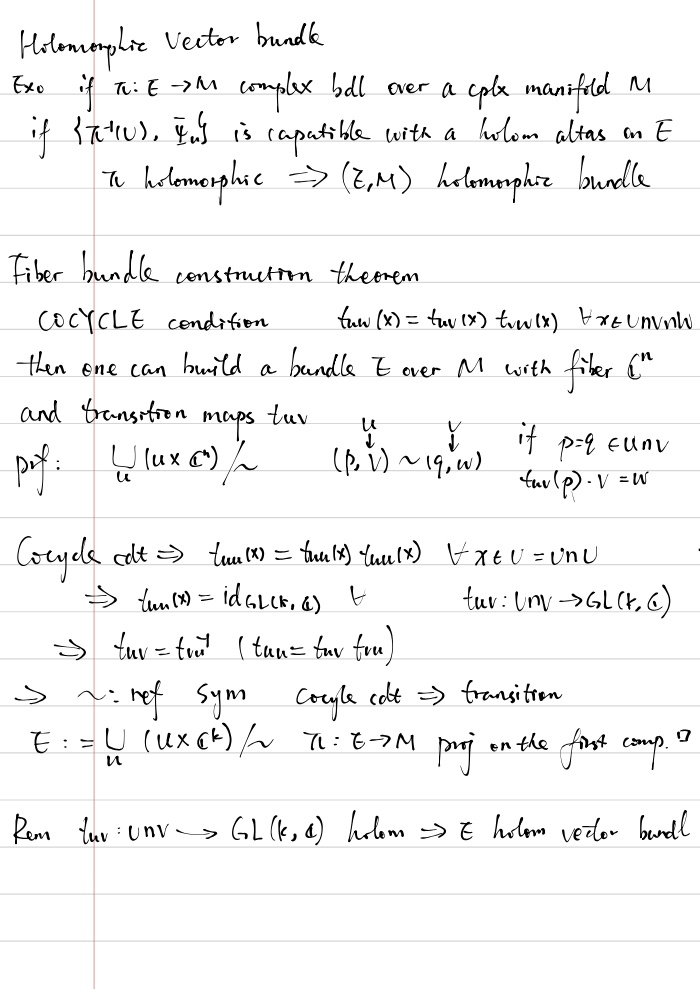 Holomorphic Vector bundle
Exo if π: E → M complex bdl over a cplx manifold M
if {π⁻¹(U), Ψ_u} is capatible with a holom altas on E
π holomorphic ⇒ (E, M) holomorphic bundle
Fiber bundle construction theorem
COCYCLE condition t_uw(x) = t_uv(x) t_vw(x) ∀x∈U∩V∩W
then one can build a bundle E over M with fiber ℂⁿ
and transition maps t_uv
prf: ⋃_u (U × ℂⁿ)/∼ (p, v) ∼ (q, w) if p=q ∈ U∩V
U ↓ V ↓ t_uv(p)·v = w
Cocycle cdt ⇒ t_uu(x) = t_uu(x) t_uu(x) ∀x∈U = U∩U
⇒ t_uu(x) = id_GL(k, ℂ) ∀ t_uv: U∩V → GL(k, ℂ)
⇒ t_uv = t_vu⁻¹ (t_uu = t_uv t_vu)
⇒ ∼: ref sym cocyle cdt ⇒ transition
E := ⋃_u (U × ℂᵏ)/∼ π: E → M proj on the first comp. □
Rem t_uv: U∩V → GL(k, ℂ) holom ⇒ E holom vector bundl